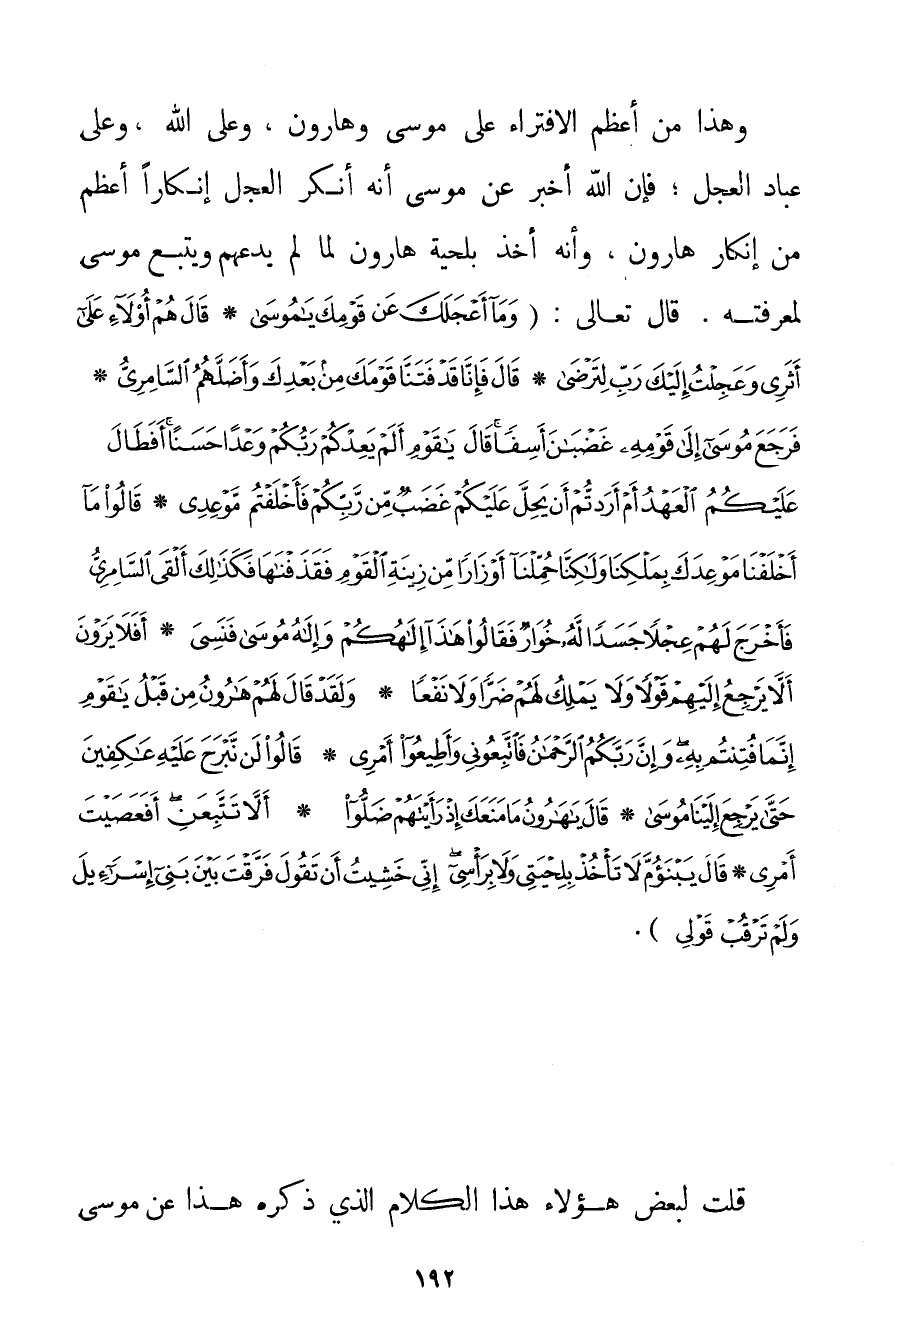 وهذا من أعظم الافتراء على موسى وهارون ، وعلى الله ، وعلى
عباد العجل ؛ فإن الله أخبر عن موسى أنه أنكر العجل إنكاراً أعظم
من إنكار هارون ، وأنه أخذ بلحية هارون لما لم يدعهم ويتبع موسى
لمعرفته . قال تعالى : ( وَمَآ أَعْجَلَكَ عَن قَوْمِكَ يَٰمُوسَىٰ * قَالَ هُمْ أُوْلَآءِ عَلَىٰٓ
أَثَرِى وَعَجِلْتُ إِلَيْكَ رَبِّ لِتَرْضَىٰ * قَالَ فَإِنَّا قَدْ فَتَنَّا قَوْمَكَ مِنۢ بَعْدِكَ وَأَضَلَّهُمُ ٱلسَّامِرِىُّ *
فَرَجَعَ مُوسَىٰٓ إِلَىٰ قَوْمِهِۦ غَضْبَٰنَ أَسِفًاۚ قَالَ يَٰقَوْمِ أَلَمْ يَعِدْكُمْ رَبُّكُمْ وَعْدًا حَسَنًاۚ أَفَطَالَ
عَلَيْكُمُ ٱلْعَهْدُ أَمْ أَرَدتُّمْ أَن يَحِلَّ عَلَيْكُمْ غَضَبٌ مِّن رَّبِّكُمْ فَأَخْلَفْتُم مَّوْعِدِى * قَالُوا۟ مَآ
أَخْلَفْنَا مَوْعِدَكَ بِمَلْكِنَا وَلَٰكِنَّا حُمِّلْنَآ أَوْزَارًا مِّن زِينَةِ ٱلْقَوْمِ فَقَذَفْنَٰهَا فَكَذَٰلِكَ أَلْقَى ٱلسَّامِرِىُّ
فَأَخْرَجَ لَهُمْ عِجْلًا جَسَدًا لَّهُۥ خُوَارٌ فَقَالُوا۟ هَٰذَآ إِلَٰهُكُمْ وَإِلَٰهُ مُوسَىٰ فَنَسِىَ * أَفَلَا يَرَوْنَ
أَلَّا يَرْجِعُ إِلَيْهِمْ قَوْلًا وَلَا يَمْلِكُ لَهُمْ ضَرًّا وَلَا نَفْعًا * وَلَقَدْ قَالَ لَهُمْ هَٰرُونُ مِن قَبْلُ يَٰقَوْمِ
إِنَّمَا فُتِنتُم بِهِۦۖ وَإِنَّ رَبَّكُمُ ٱلرَّحْمَٰنُ فَٱتَّبِعُونِى وَأَطِيعُوٓا۟ أَمْرِى * قَالُوا۟ لَن نَّبْرَحَ عَلَيْهِ عَٰكِفِينَ
حَتَّىٰ يَرْجِعَ إِلَيْنَا مُوسَىٰ * قَالَ يَٰهَٰرُونُ مَا مَنَعَكَ إِذْ رَأَيْتَهُمْ ضَلُّوٓا۟ * أَلَّا تَتَّبِعَنِۖ أَفَعَصَيْتَ
أَمْرِى * قَالَ يَبْنَؤُمَّ لَا تَأْخُذْ بِلِحْيَتِى وَلَا بِرَأْسِىٓۖ إِنِّى خَشِيتُ أَن تَقُولَ فَرَّقْتَ بَيْنَ بَنِىٓ إِسْرَٰٓءِيلَ
وَلَمْ تَرْقُبْ قَوْلِى ) .
قلت لبعض هؤلاء هذا الكلام الذي ذكره هذا عن موسى
١٩٢